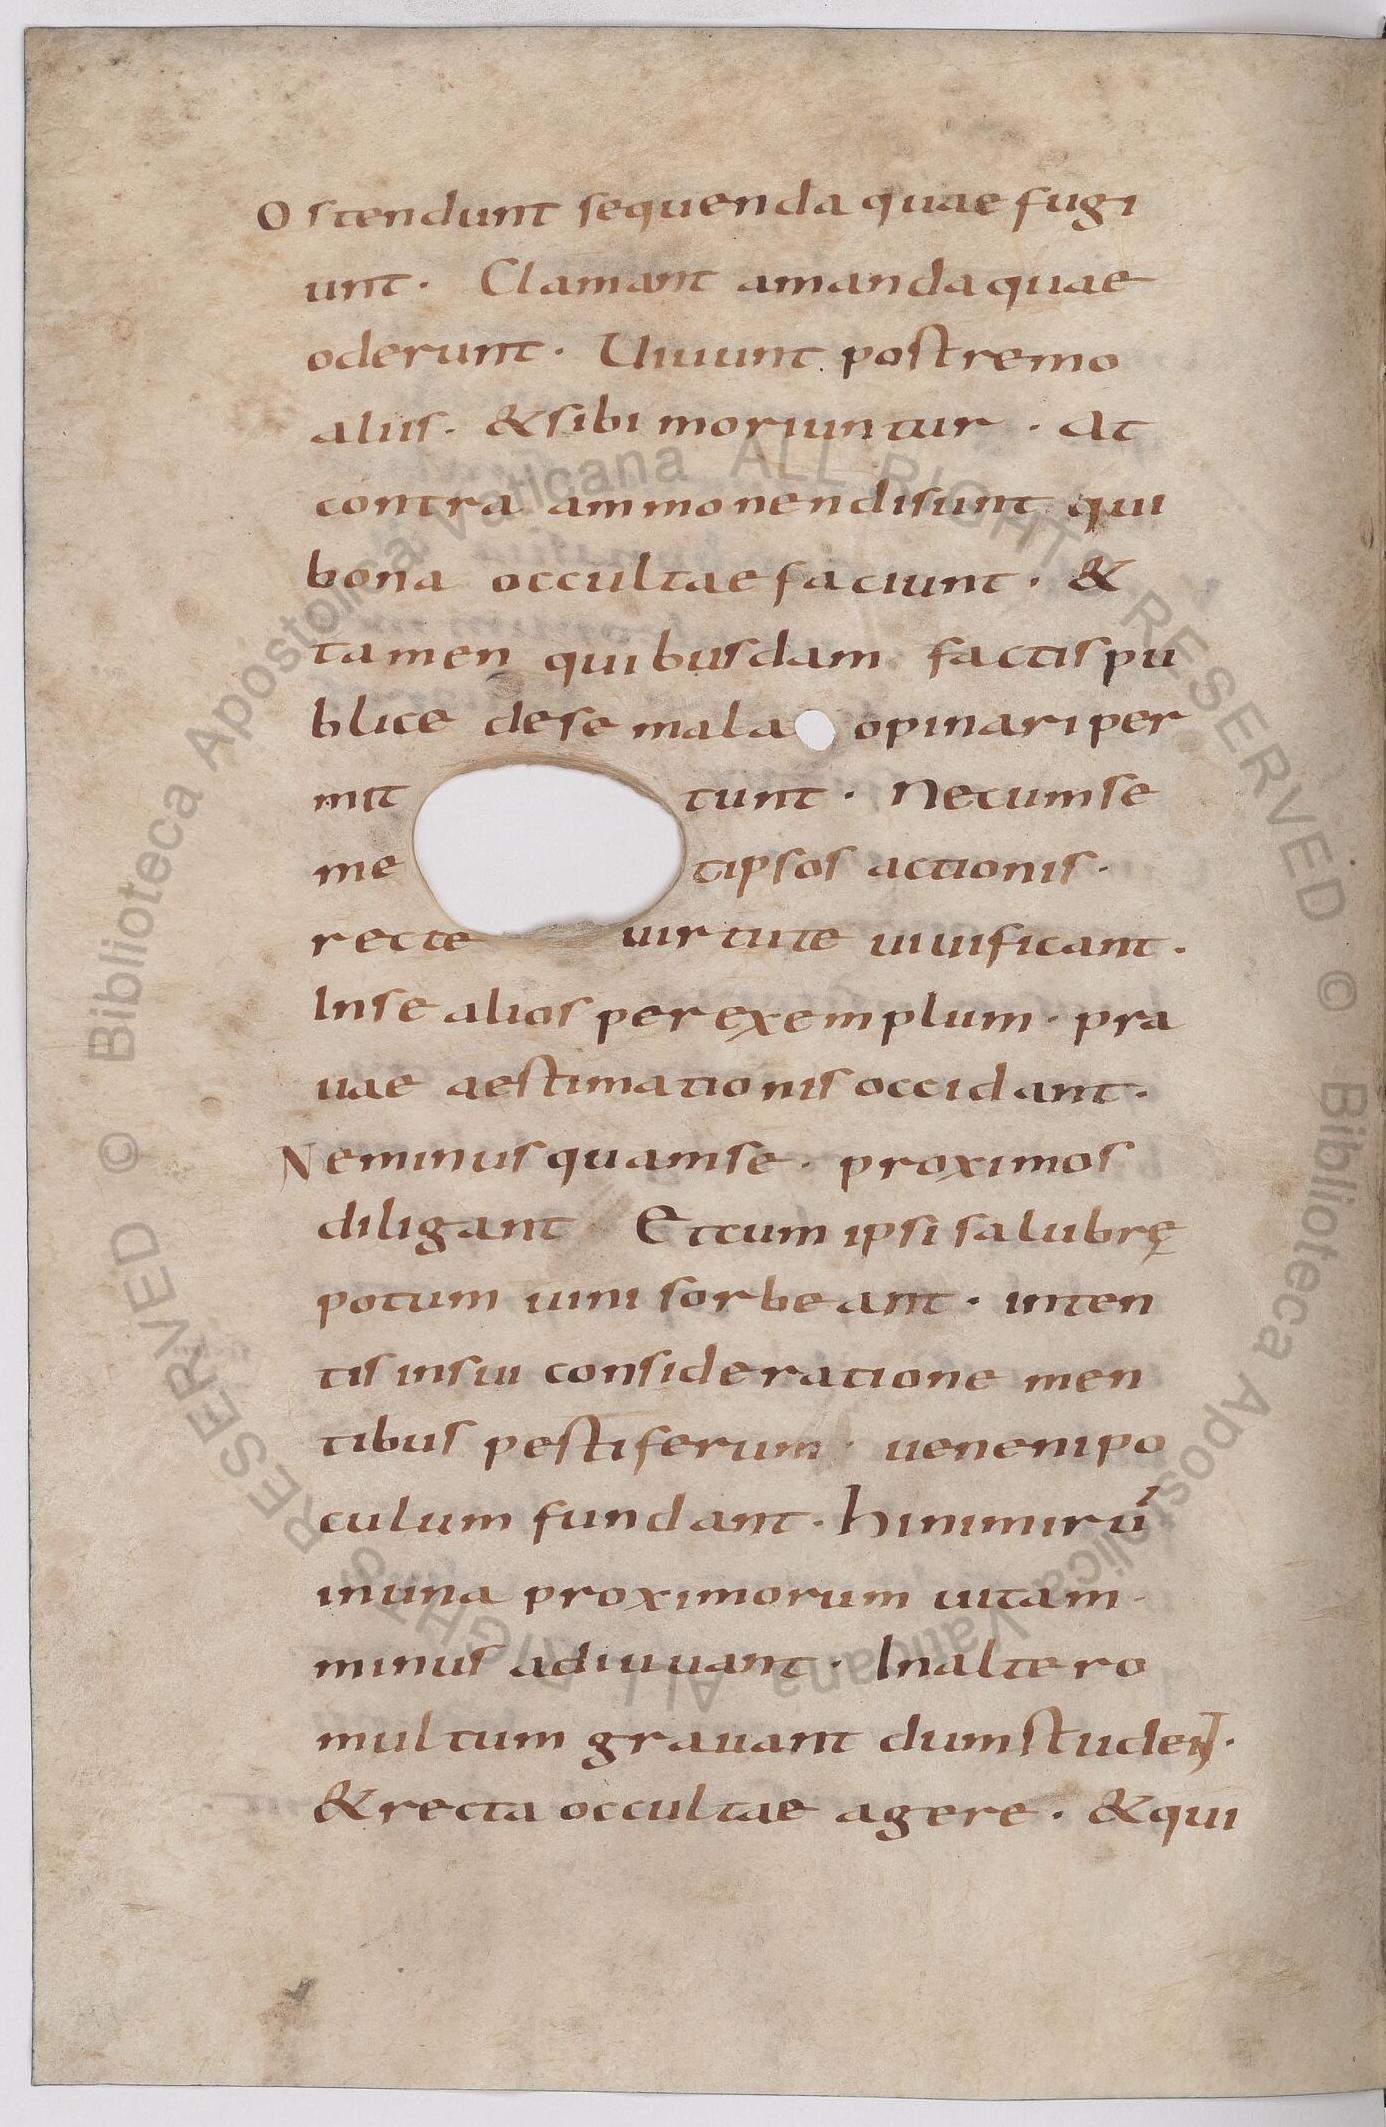 Ostendunt sequenda quae fugi
unt · Clamant amanda quae
oderunt · Uiuunt postremo
aliis · & sibi moriuntur · At
contra ammonendi sunt qui
bona occultae faciunt · &
tamen quibusdam factis pu
blice de se mala opinari per
mit tunt · Ne cum se
me tipsos actionis ·
recte uirtute uiuificant ·
In se alios per exemplum · pra
uae aestimationis occidant ·
Ne minus quam se · proximos
diligant Et cum ipsi salubrę
potum uini sorbeant · inten
tis in sui consideratione men
tibus pestiferum · ueneni po
culum fundant · hi nimirū
in una proximorum uitam ·
minus adiuuant · In altero
multum grauant dum student ·
& recta occultae agere · & qui
© Biblioteca Apostolica Vaticana ALL RIGHTS RESERVED
© Biblioteca Apostolica Vaticana ALL RIGHTS RESERVED